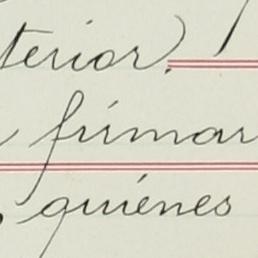 terior.
firmar
quiénes